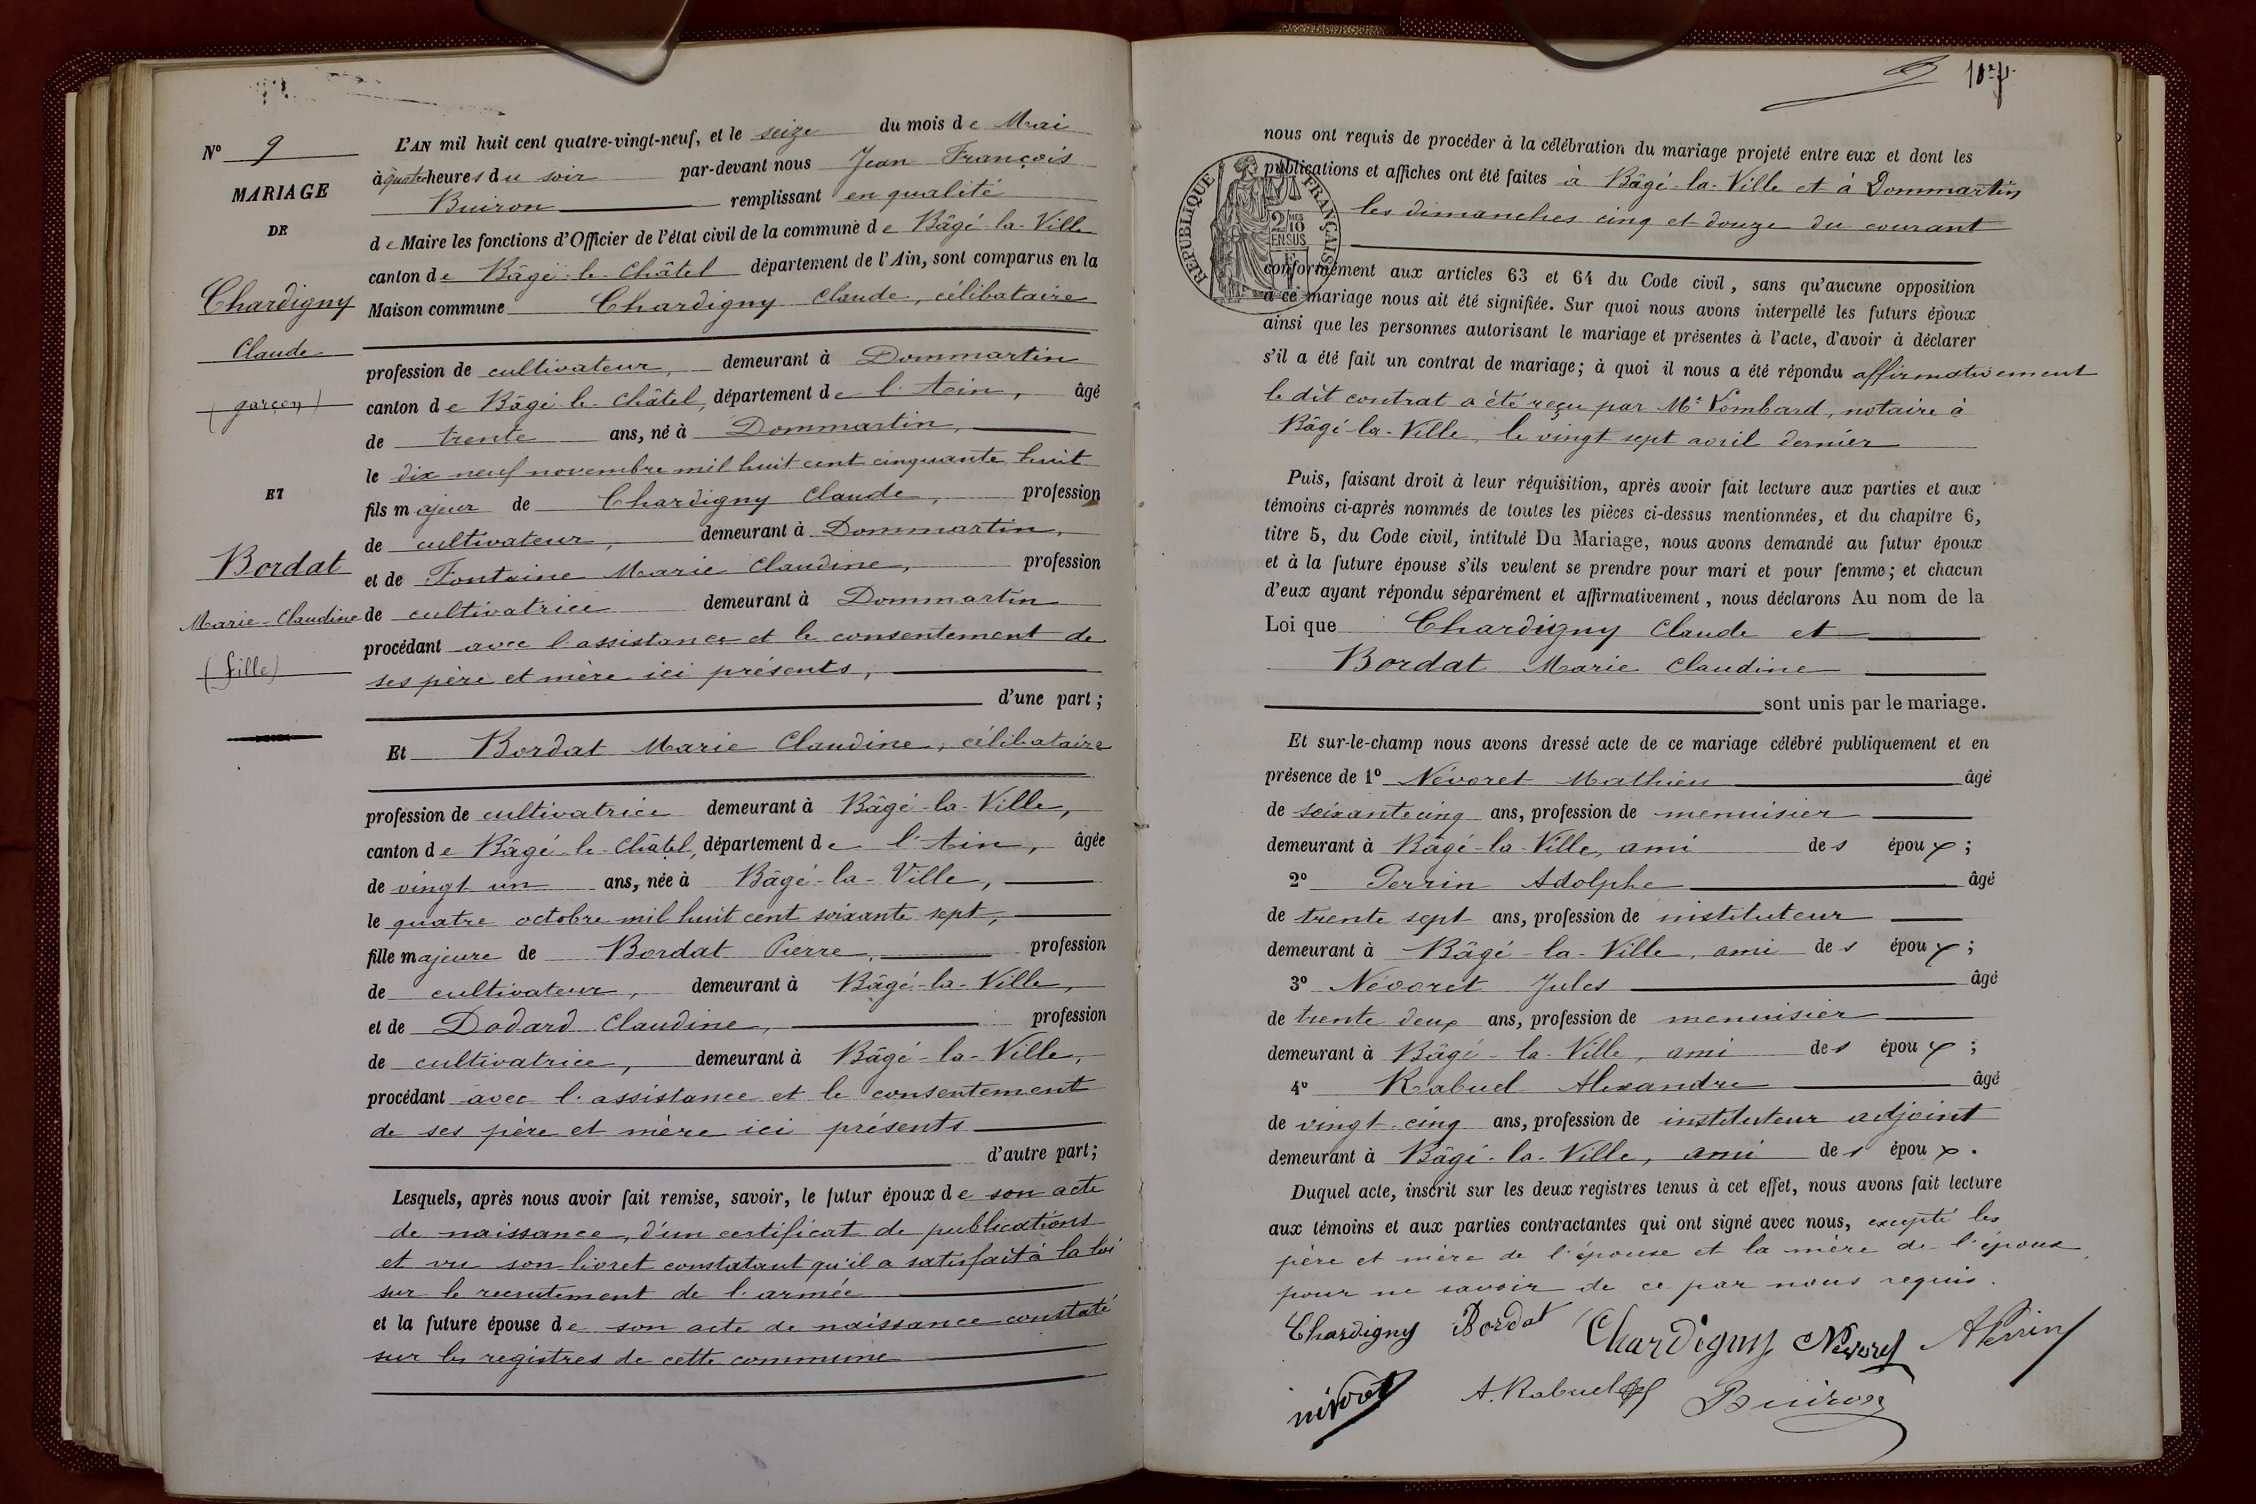 Nº 9
MARIAGE
DE
Chardigny
Claude
(garçon)
ET
Bordat
Marie-Claudine
(fille)
L'AN mil huit cent quatre-vingt-neuf, et le seize du mois de Mai
à quatre heures du soir par-devant nous Jean François
Buiron remplissant en qualité
de Maire les fonctions d'Officier de l'état civil de la commune de Bâgé-la-Ville
canton de Bâgé-le-Châtel département de l'Ain, sont comparus en la
Maison commune Chardigny Claude, célibataire
profession de cultivateur, demeurant à Dommartin
canton de Bâgé-le-Châtel, département de l'Ain, âgé
de trente ans, né à Dommartin,
le dix neuf novembre mil huit cent cinquante huit
fils majeur de Chardigny Claude, profession
de cultivateur, demeurant à Dommartin,
et de Fontaine Marie Claudine, profession
de cultivatrice demeurant à Dommartin
procédant avec l'assistance et le consentement de
ses père et mère ici présents,
d'une part;
Et Bordat Marie Claudine, célibataire
profession de cultivatrice demeurant à Bâgé-la-Ville,
canton de Bâgé-le-Châtel, département de l'Ain, âgée
de vingt un ans, née à Bâgé-la-Ville,
le quatre octobre mil huit cent soixante sept,
fille majeure de Bordat Pierre, profession
de cultivateur, demeurant à Bâgé-la-Ville,
et de Dodard Claudine, profession
de cultivatrice, demeurant à Bâgé-la-Ville,
procédant avec l'assistance et le consentement
de ses père et mère ici présents
d'autre part;
Lesquels, après nous avoir fait remise, savoir, le futur époux de son acte
de naissance, d'un certificat de publications
et vu son livret constatant qu'il a satisfait à la loi
sur le recrutement de l'armée
et la future épouse de son acte de naissance constaté
sur les registres de cette commune
nous ont requis de procéder à la célébration du mariage projeté entre eux et dont les
publications et affiches ont été faites à Bâgé-la-Ville et à Dommartin,
les dimanches cinq et douze du courant
RÉPUBLIQUE FRANÇAISE
2/10
EN SUS
conformément aux articles 63 et 64 du Code civil, sans qu'aucune opposition
à ce mariage nous ait été signifiée. Sur quoi nous avons interpellé les futurs époux
ainsi que les personnes autorisant le mariage et présentes à l'acte, d'avoir à déclarer
s'il a été fait un contrat de mariage; à quoi il nous a été répondu affirmativement
le dit contrat a été reçu par Me Lombard, notaire à
Bâgé-la-Ville, le vingt sept avril dernier
Puis, faisant droit à leur réquisition, après avoir fait lecture aux parties et aux
témoins ci-après nommés de toutes les pièces ci-dessus mentionnées, et du chapitre 6,
titre 5, du Code civil, intitulé Du Mariage, nous avons demandé au futur époux
et à la future épouse s'ils veulent se prendre pour mari et pour femme; et chacun
d'eux ayant répondu séparément et affirmativement, nous déclarons Au nom de la
Loi que Chardigny Claude et
Bordat Marie Claudine
sont unis par le mariage.
Et sur-le-champ nous avons dressé acte de ce mariage célébré publiquement et en
présence de 1º Névoret Mathieu âgé
de soixante cinq ans, profession de menuisier
demeurant à Bâgé-la-Ville, ami des époux;
2º Perrin Adolphe âgé
de trente sept ans, profession de instituteur
demeurant à Bâgé-la-Ville, ami des époux;
3º Névoret Jules âgé
de trente deux ans, profession de menuisier
demeurant à Bâgé-la-Ville, ami des époux;
4º Rabuel Alexandre âgé
de vingt-cinq ans, profession de instituteur adjoint
demeurant à Bâgé-la-Ville, ami des époux.
Duquel acte, inscrit sur les deux registres tenus à cet effet, nous avons fait lecture
aux témoins et aux parties contractantes qui ont signé avec nous, excepté les
père et mère de l'épouse et la mère de l'époux
pour ne savoir de ce par nous requis.
Chardigny Bordat Chardigny Névoret APerrin
névoret A. Rabuel Buiron